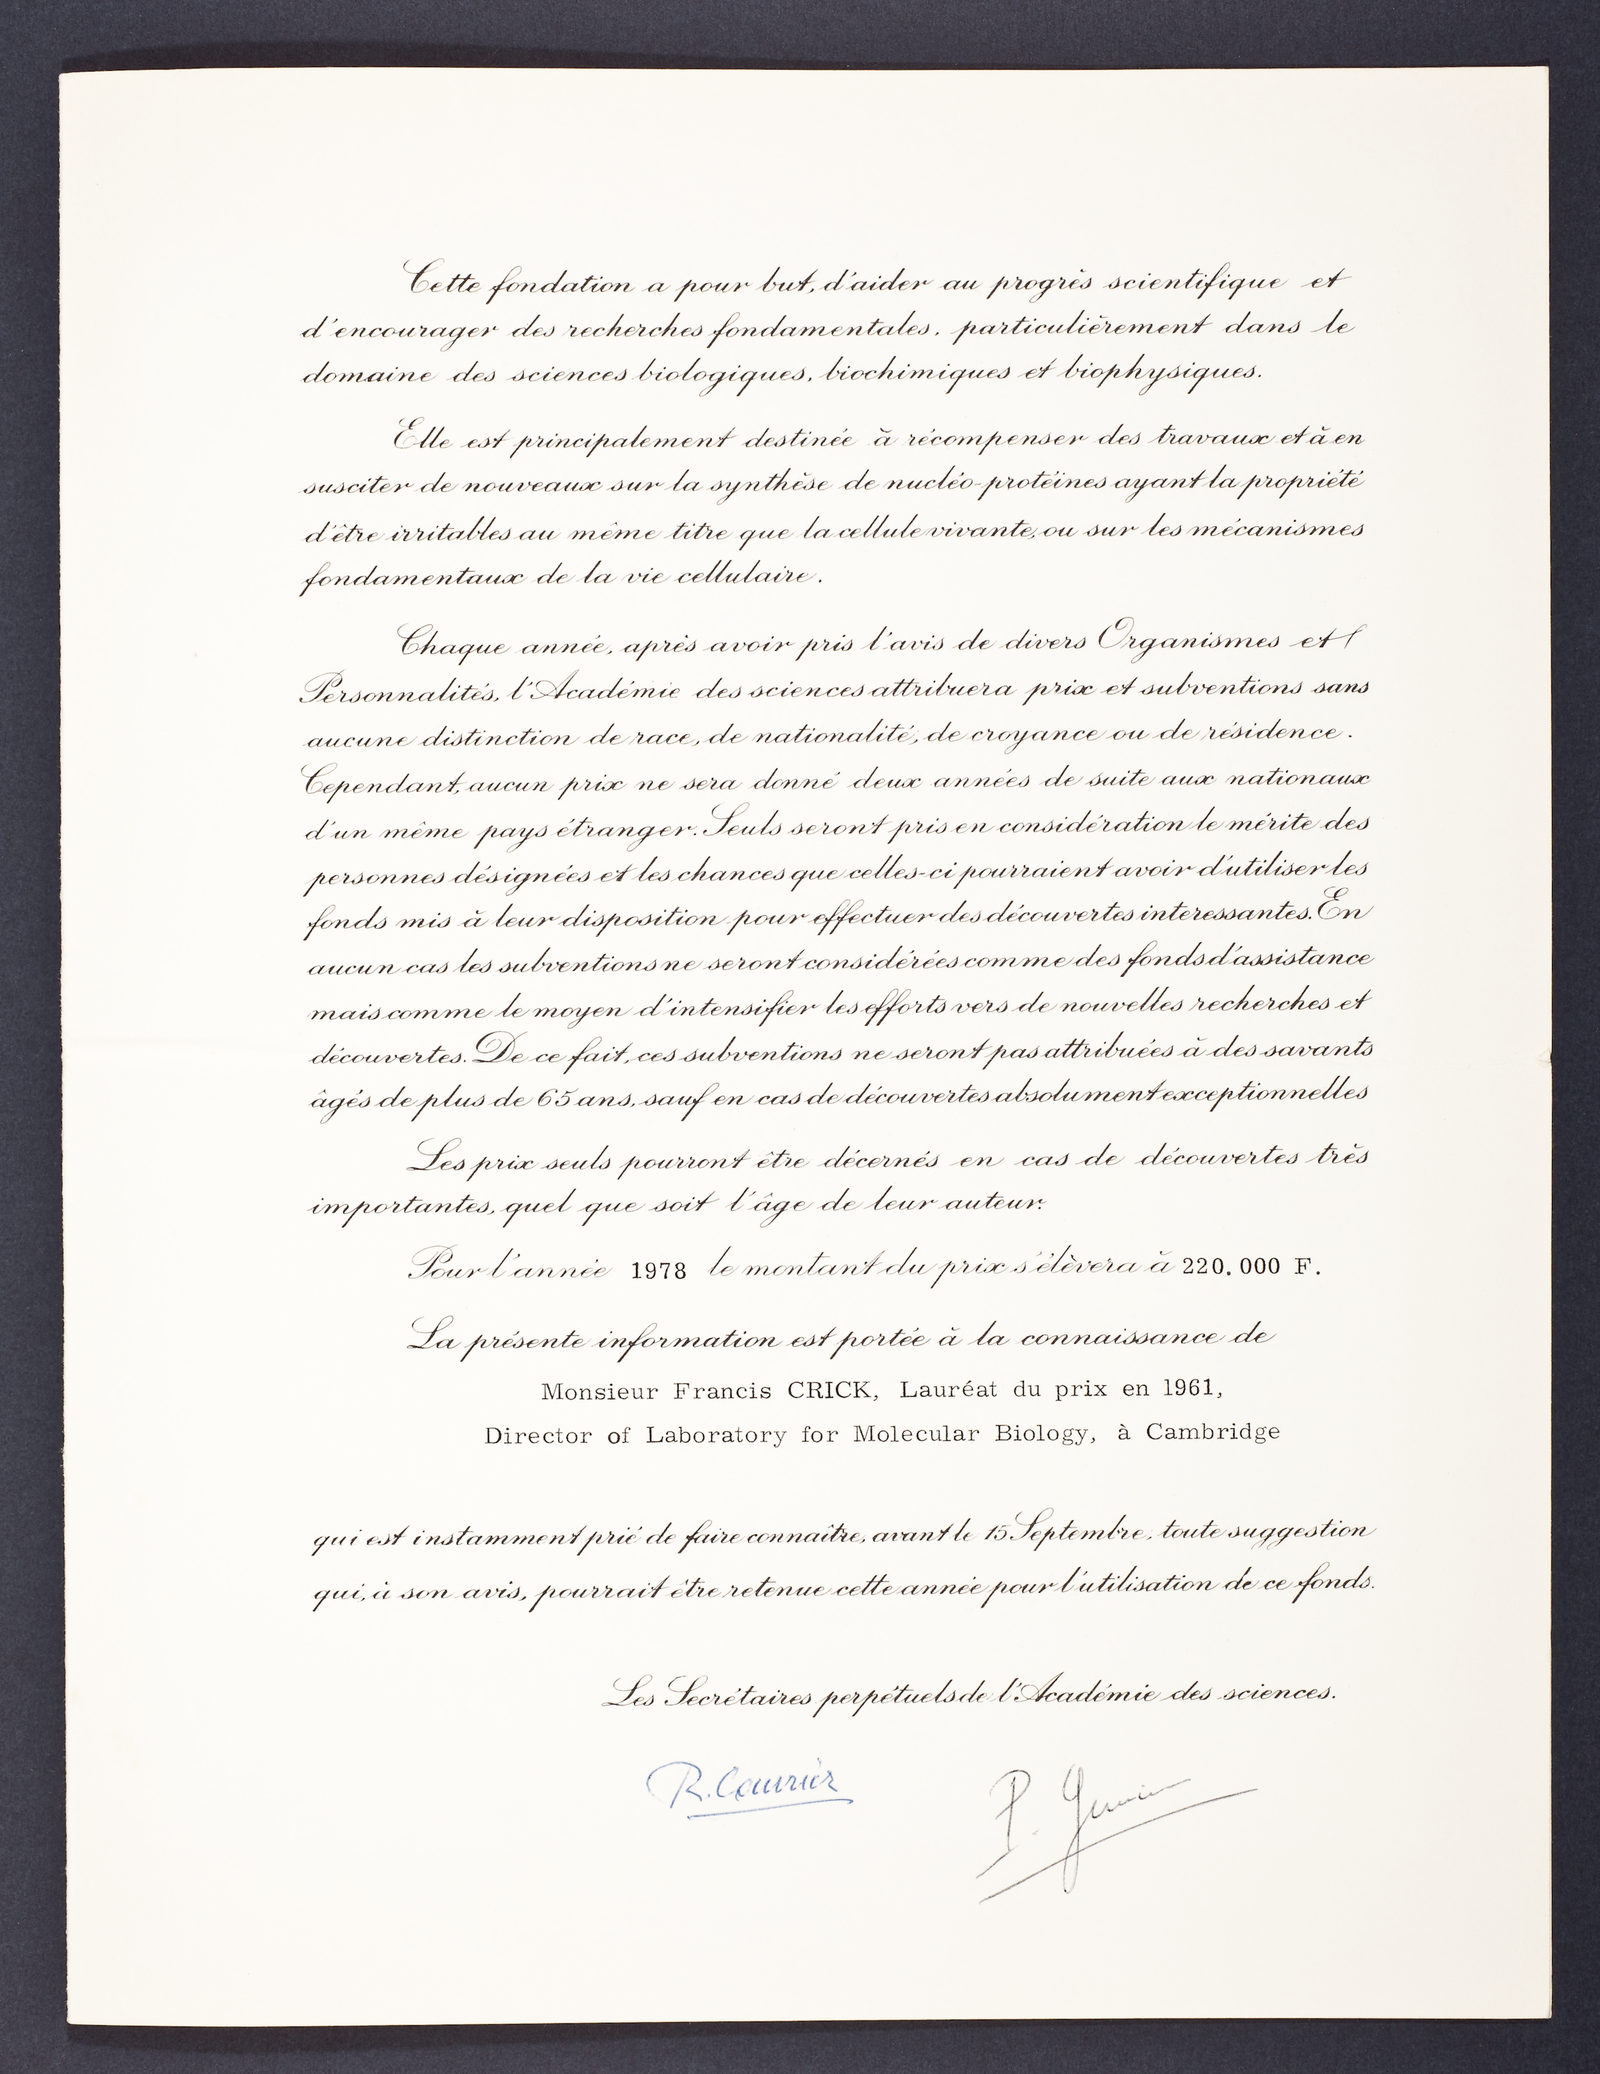 Cette fondation a pour but, d'aider au progrès scientifique et
d'encourager des recherches fondamentales, particulièrement dans le
domaine des sciences biologiques, biochimiques et biophysiques.
Elle est principalement destinée à récompenser des travaux et à en
susciter de nouveaux sur la synthèse de nucléo-protéines ayant la propriété
d'être irritables au même titre que la cellule vivante, ou sur les mécanismes
fondamentaux de la vie cellulaire.
Chaque année, après avoir pris l'avis de divers Organismes et
Personnalités, l'Académie des sciences attribuera prix et subventions sans
aucune distinction de race, de nationalité, de croyance ou de résidence.
Cependant, aucun prix ne sera donné deux années de suite aux nationaux
d'un même pays étranger. Seuls seront pris en considération le mérite des
personnes désignées et les chances que celles-ci pourraient avoir d'utiliser les
fonds mis à leur disposition pour effectuer des découvertes interessantes. En
aucun cas les subventions ne seront considérées comme des fonds d'assistance
mais comme le moyen d'intensifier les efforts vers de nouvelles recherches et
découvertes. De ce fait, ces subventions ne seront pas attribuées à des savants
âgés de plus de 65 ans, sauf en cas de découvertes absolument exceptionnelles
Les prix seuls pourront être décernés en cas de découvertes très
importantes, quel que soit l'âge de leur auteur.
Pour l'année 1978 le montant du prix s'élèvera à 220.000 F.
La présente information est portée à la connaissance de
Monsieur Francis CRICK, Lauréat du prix en 1961,
Director of Laboratory for Molecular Biology, à Cambridge
qui est instamment prié de faire connaître, avant le 15 Septembre, toute suggestion
qui, à son avis, pourrait être retenue cette année pour l'utilisation de ce fonds.
Les Secrétaires perpétuels de l'Académie des sciences.
R. Courrier
P.